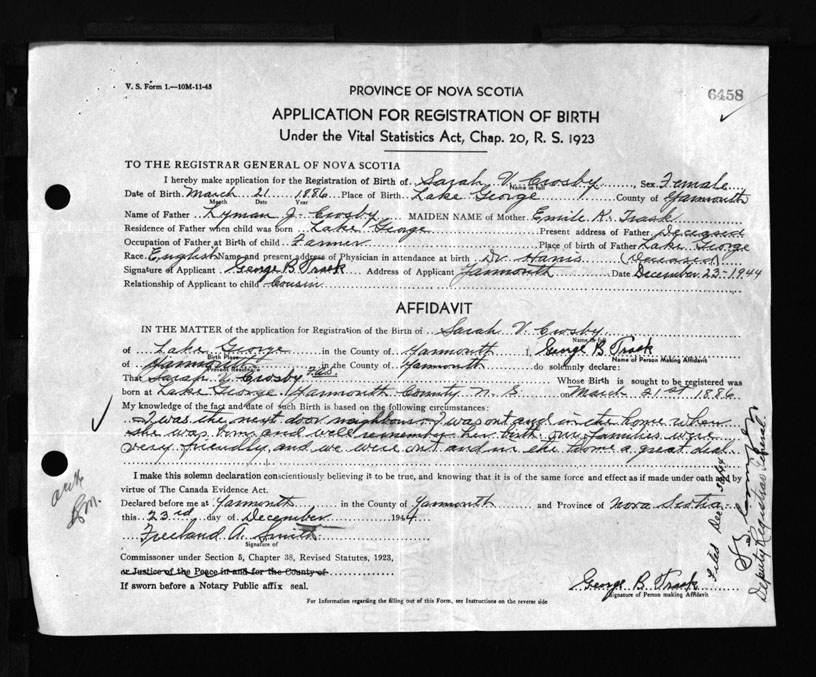 V. S. Form 1.—10M-11-43
6458
PROVINCE OF NOVA SCOTIA
APPLICATION FOR REGISTRATION OF BIRTH
Under the Vital Statistics Act, Chap. 20, R. S. 1923
TO THE REGISTRAR GENERAL OF NOVA SCOTIA
I hereby make application for the Registration of Birth of Sarah V. Crosby, Sex Female
Name in full
Date of Birth March 21 1886 Place of Birth Lake George County of Yarmouth
Month Date Year
Name of Father Lyman J. Crosby MAIDEN NAME of Mother Emilie K. Trask
Residence of Father when child was born Lake George Present address of Father Deceased
Occupation of Father at Birth of child Farmer Place of birth of Father Lake George
Race English Name and present address of Physician in attendance at birth Dr Harris (Deceased)
Signature of Applicant George B. Trask Address of Applicant Yarmouth Date December 23-1944
Relationship of Applicant to child Cousin
AFFIDAVIT
IN THE MATTER of the application for Registration of the Birth of Sarah V. Crosby
Name in full
of Lake George in the County of Yarmouth I, George B. Trask
Birth Place Name of Person Making Affidavit
of Yarmouth in the County of Yarmouth do solemnly declare:
Present Residence
That Sarah V. Crosby Whose Birth is sought to be registered was
born at Lake George Yarmouth County N. S. on March 21st 1886
My knowledge of the fact and date of such Birth is based on the following circumstances:
I was the next door neighbour. I was out and in the home when
she was born and well remember her birth. Our families were
very friendly, and we were out and in the home a great deal
I make this solemn declaration conscientiously believing it to be true, and knowing that it is of the same force and effect as if made under oath and by
virtue of The Canada Evidence Act.
Declared before me at Yarmouth in the County of Yarmouth and Province of Nova Scotia
this 23rd day of December 1944
Freeland A. Smith
Signature of
Commissioner under Section 5, Chapter 38, Revised Statutes, 1923,
or Justice of the Peace in and for the County of
If sworn before a Notary Public affix seal.
George B. Trask
Signature of Person making Affidavit
For Information regarding the filling out of this Form, see Instructions on the reverse side
Filed Dec
Deputy Registrar General